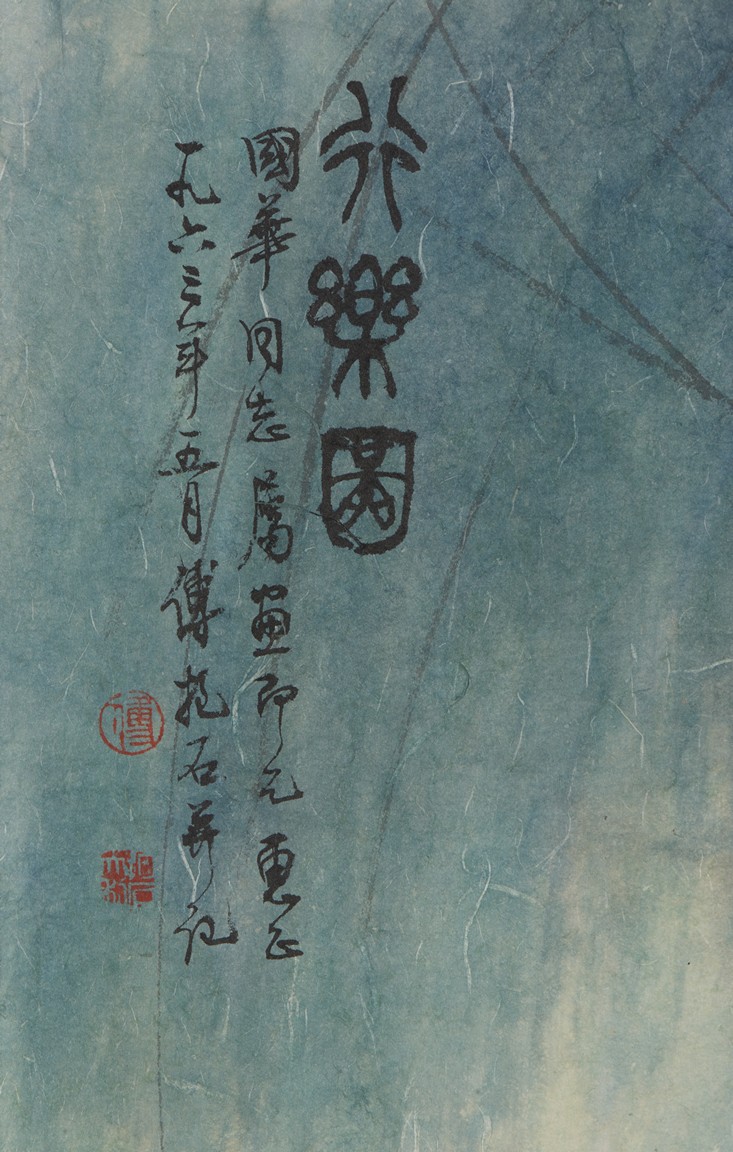 行樂圖
國華同志屬畫即乞惠正
一九六三年五月傅抱石并記
傅